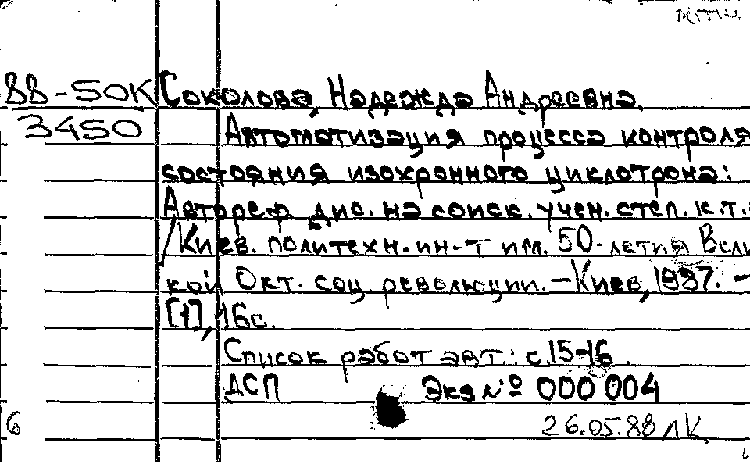 88-50К Соколова, Надежда Андреевна.
3450 Автоматизация процесса контроля
состояния изохронного циклотрона:
Автореф. дис. на соиск. учен. степ. к.т.
/Киев. политехн. ин-т им. 50-летия Вели
кой Окт. соц. революции. -Киев, 1987. -
[1], 16с.
Список работ авт: с.15-16.
ДСП Экз № 000 004
6 26.05.88 ЛК